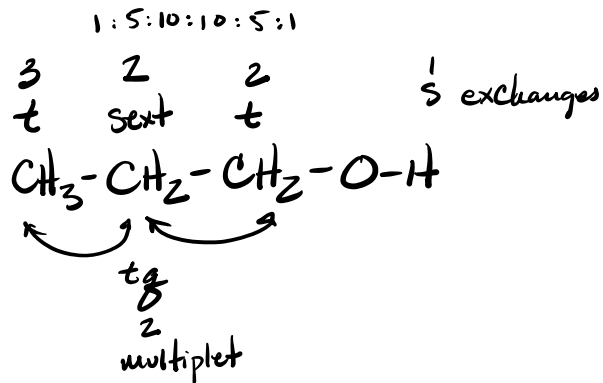 1:5:10:10:5:1
3 2 2 1
t sext t s exchanges
CH₃-CH₂-CH₂-O-H
tq
2
multiplet